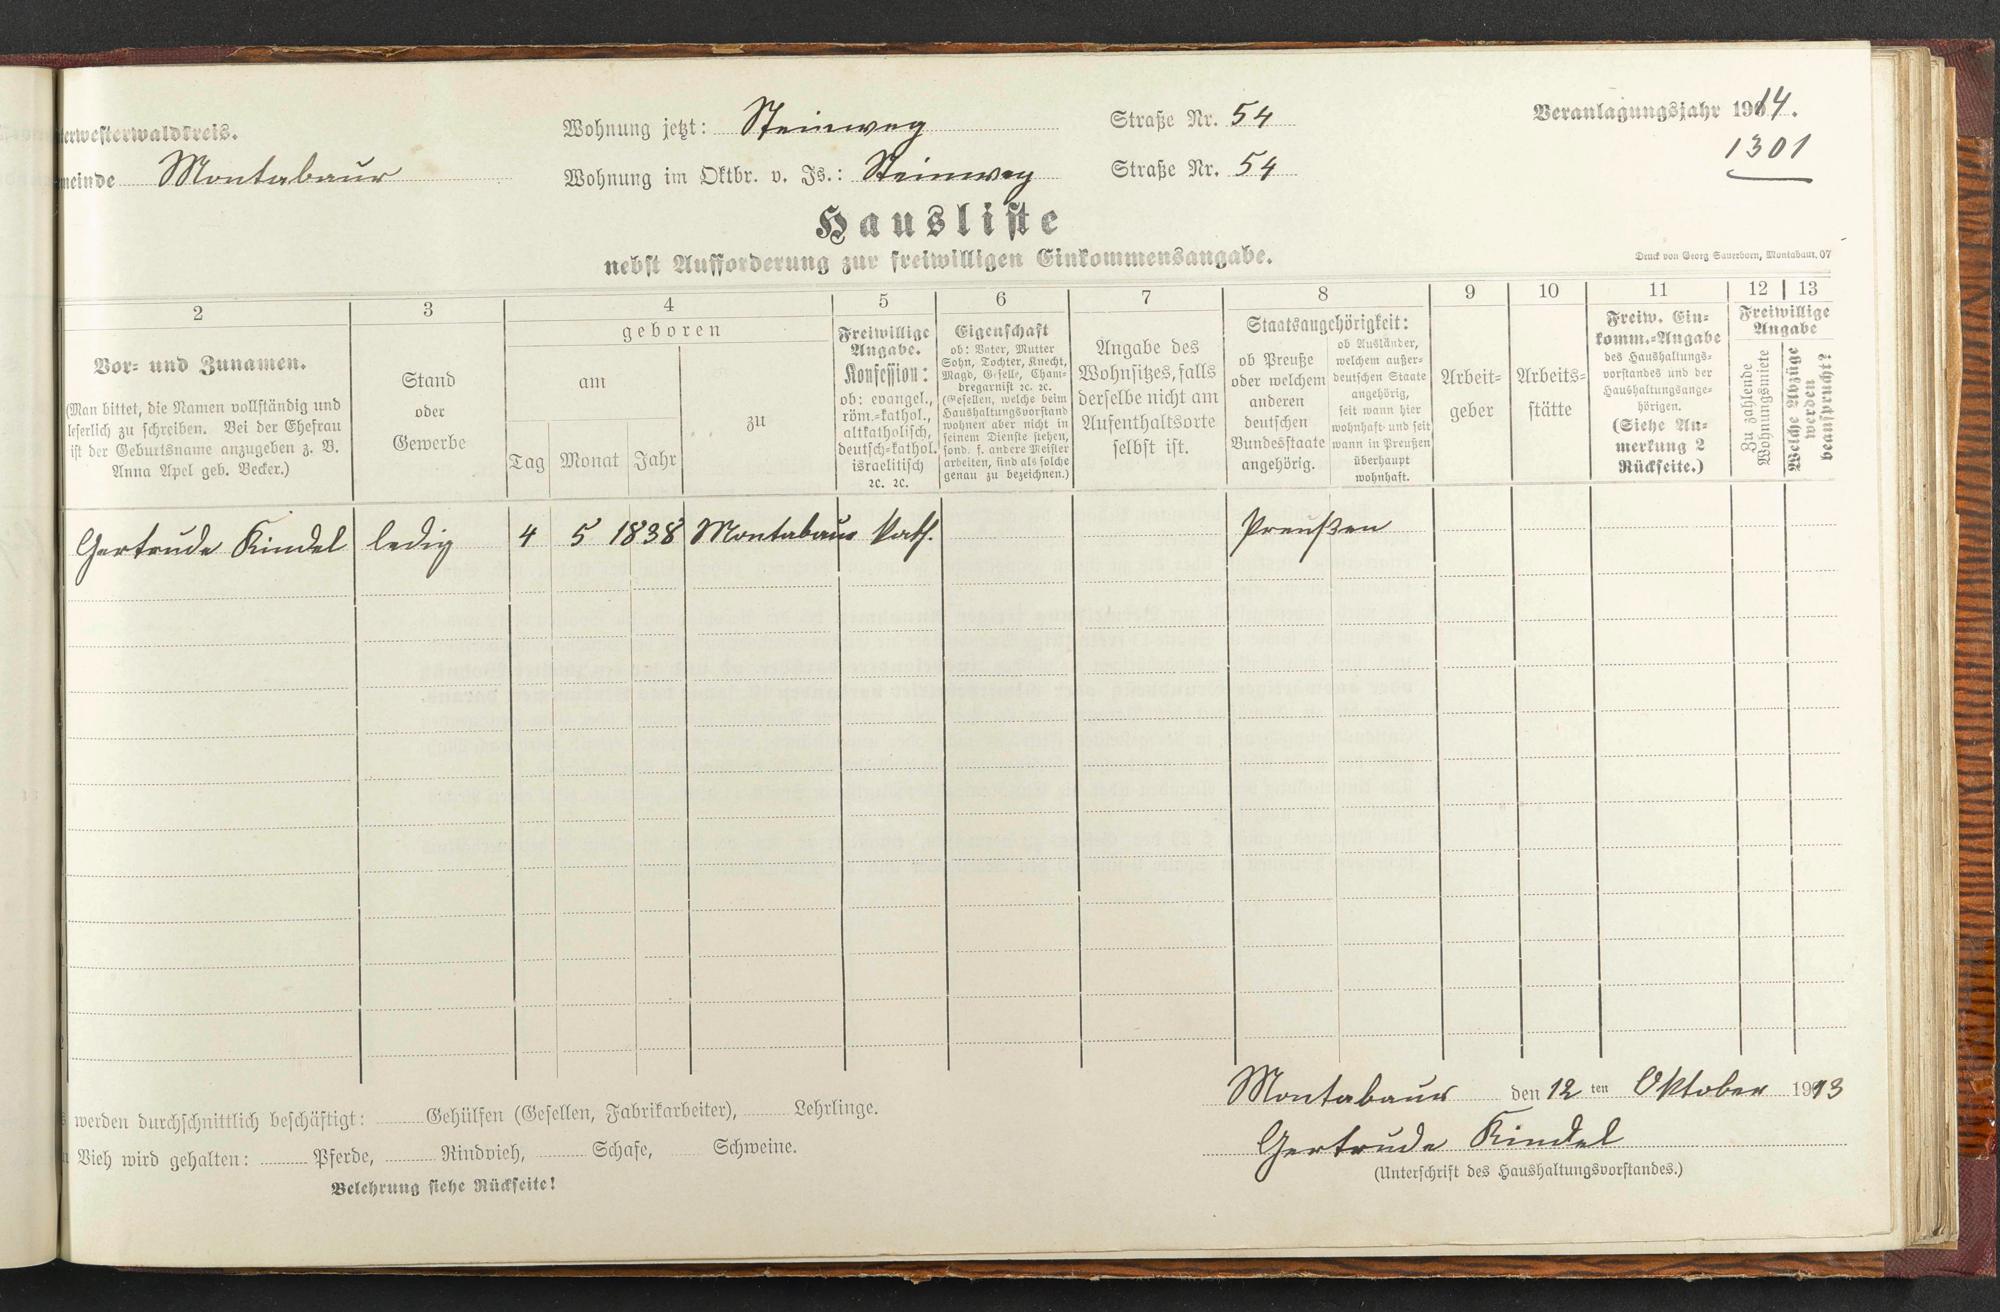 erwesterwaldkreis.
meinde Montabaur
Wohnung jetzt: Steinweg Straße Nr. 54
Wohnung im Oktbr. v. Js.: Steinweg Straße Nr. 54
Veranlagungsjahr 1914.
1301
Hausliste
nebst Aufforderung zur freiwilligen Einkommensangabe.
Druck von Georg Sauerborn, Montabaur. 07
2
Vor- und Zunamen.
(Man bittet, die Namen vollständig und
leserlich zu schreiben. Bei der Ehefrau
ist der Geburtsname anzugeben z. B.
Anna Apel geb. Becker.)
3
Stand
oder
Gewerbe
4
geboren
am
Tag Monat Jahr
zu
5
Freiwillige
Angabe.
Konfession:
ob: evangel.,
röm.-kathol.,
altkatholisch,
deutsch-kathol.
israelitisch
ꝛc. ꝛc.
6
Eigenschaft
ob: Vater, Mutter
Sohn, Tochter, Knecht,
Magd, Geselle, Cham-
bregarnist ꝛc. ꝛc.
(Gesellen, welche beim
Haushaltungsvorstand
wohnen aber nicht in
seinem Dienste stehen,
sond. f. andere Meister
arbeiten, sind als solche
genau zu bezeichnen.)
7
Angabe des
Wohnsitzes, falls
derselbe nicht am
Aufenthaltsorte
selbst ist.
8
Staatsangehörigkeit:
ob Preuße
oder welchem
anderen
deutschen
Bundesstaate
angehörig.
ob Ausländer,
welchem außer-
deutschen Staate
angehörig,
seit wann hier
wohnhaft und seit
wann in Preußen
überhaupt
wohnhaft.
9
Arbeit-
geber
10
Arbeits-
stätte
11
Freiw. Ein-
komm.-Angabe
des Haushaltungs-
vorstandes und der
Haushaltungsange-
hörigen.
(Siehe An-
merkung 2
Rückseite.)
12 13
Freiwillige
Angabe
Zu zahlende
Wohnungsmiete
Welche Abzüge
werden
beansprucht?
Gertrude Kindel ledig 4 5 1838 Montabaur kath. Preußen
werden durchschnittlich beschäftigt: Gehülfen (Gesellen, Fabrikarbeiter), Lehrlinge.
Vieh wird gehalten: Pferde, Rindvieh, Schafe, Schweine.
Belehrung siehe Rückseite!
Montabaur den 12 ten Oktober 1913
Gertrude Kindel
(Unterschrift des Haushaltungsvorstandes.)